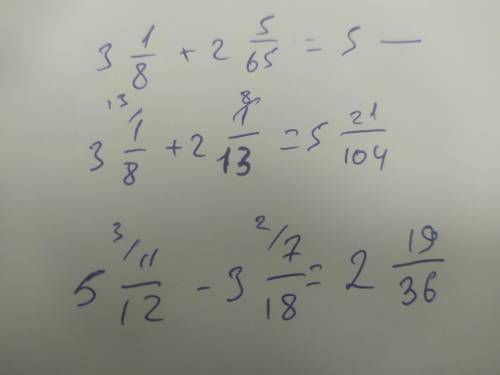 3 1/8 + 2 5/65 = 5 —
3 ¹³/1/8 + 2 ⁸/1/13 = 5 21/104
5 ³/11/12 - 3 ²/7/18 = 2 19/36